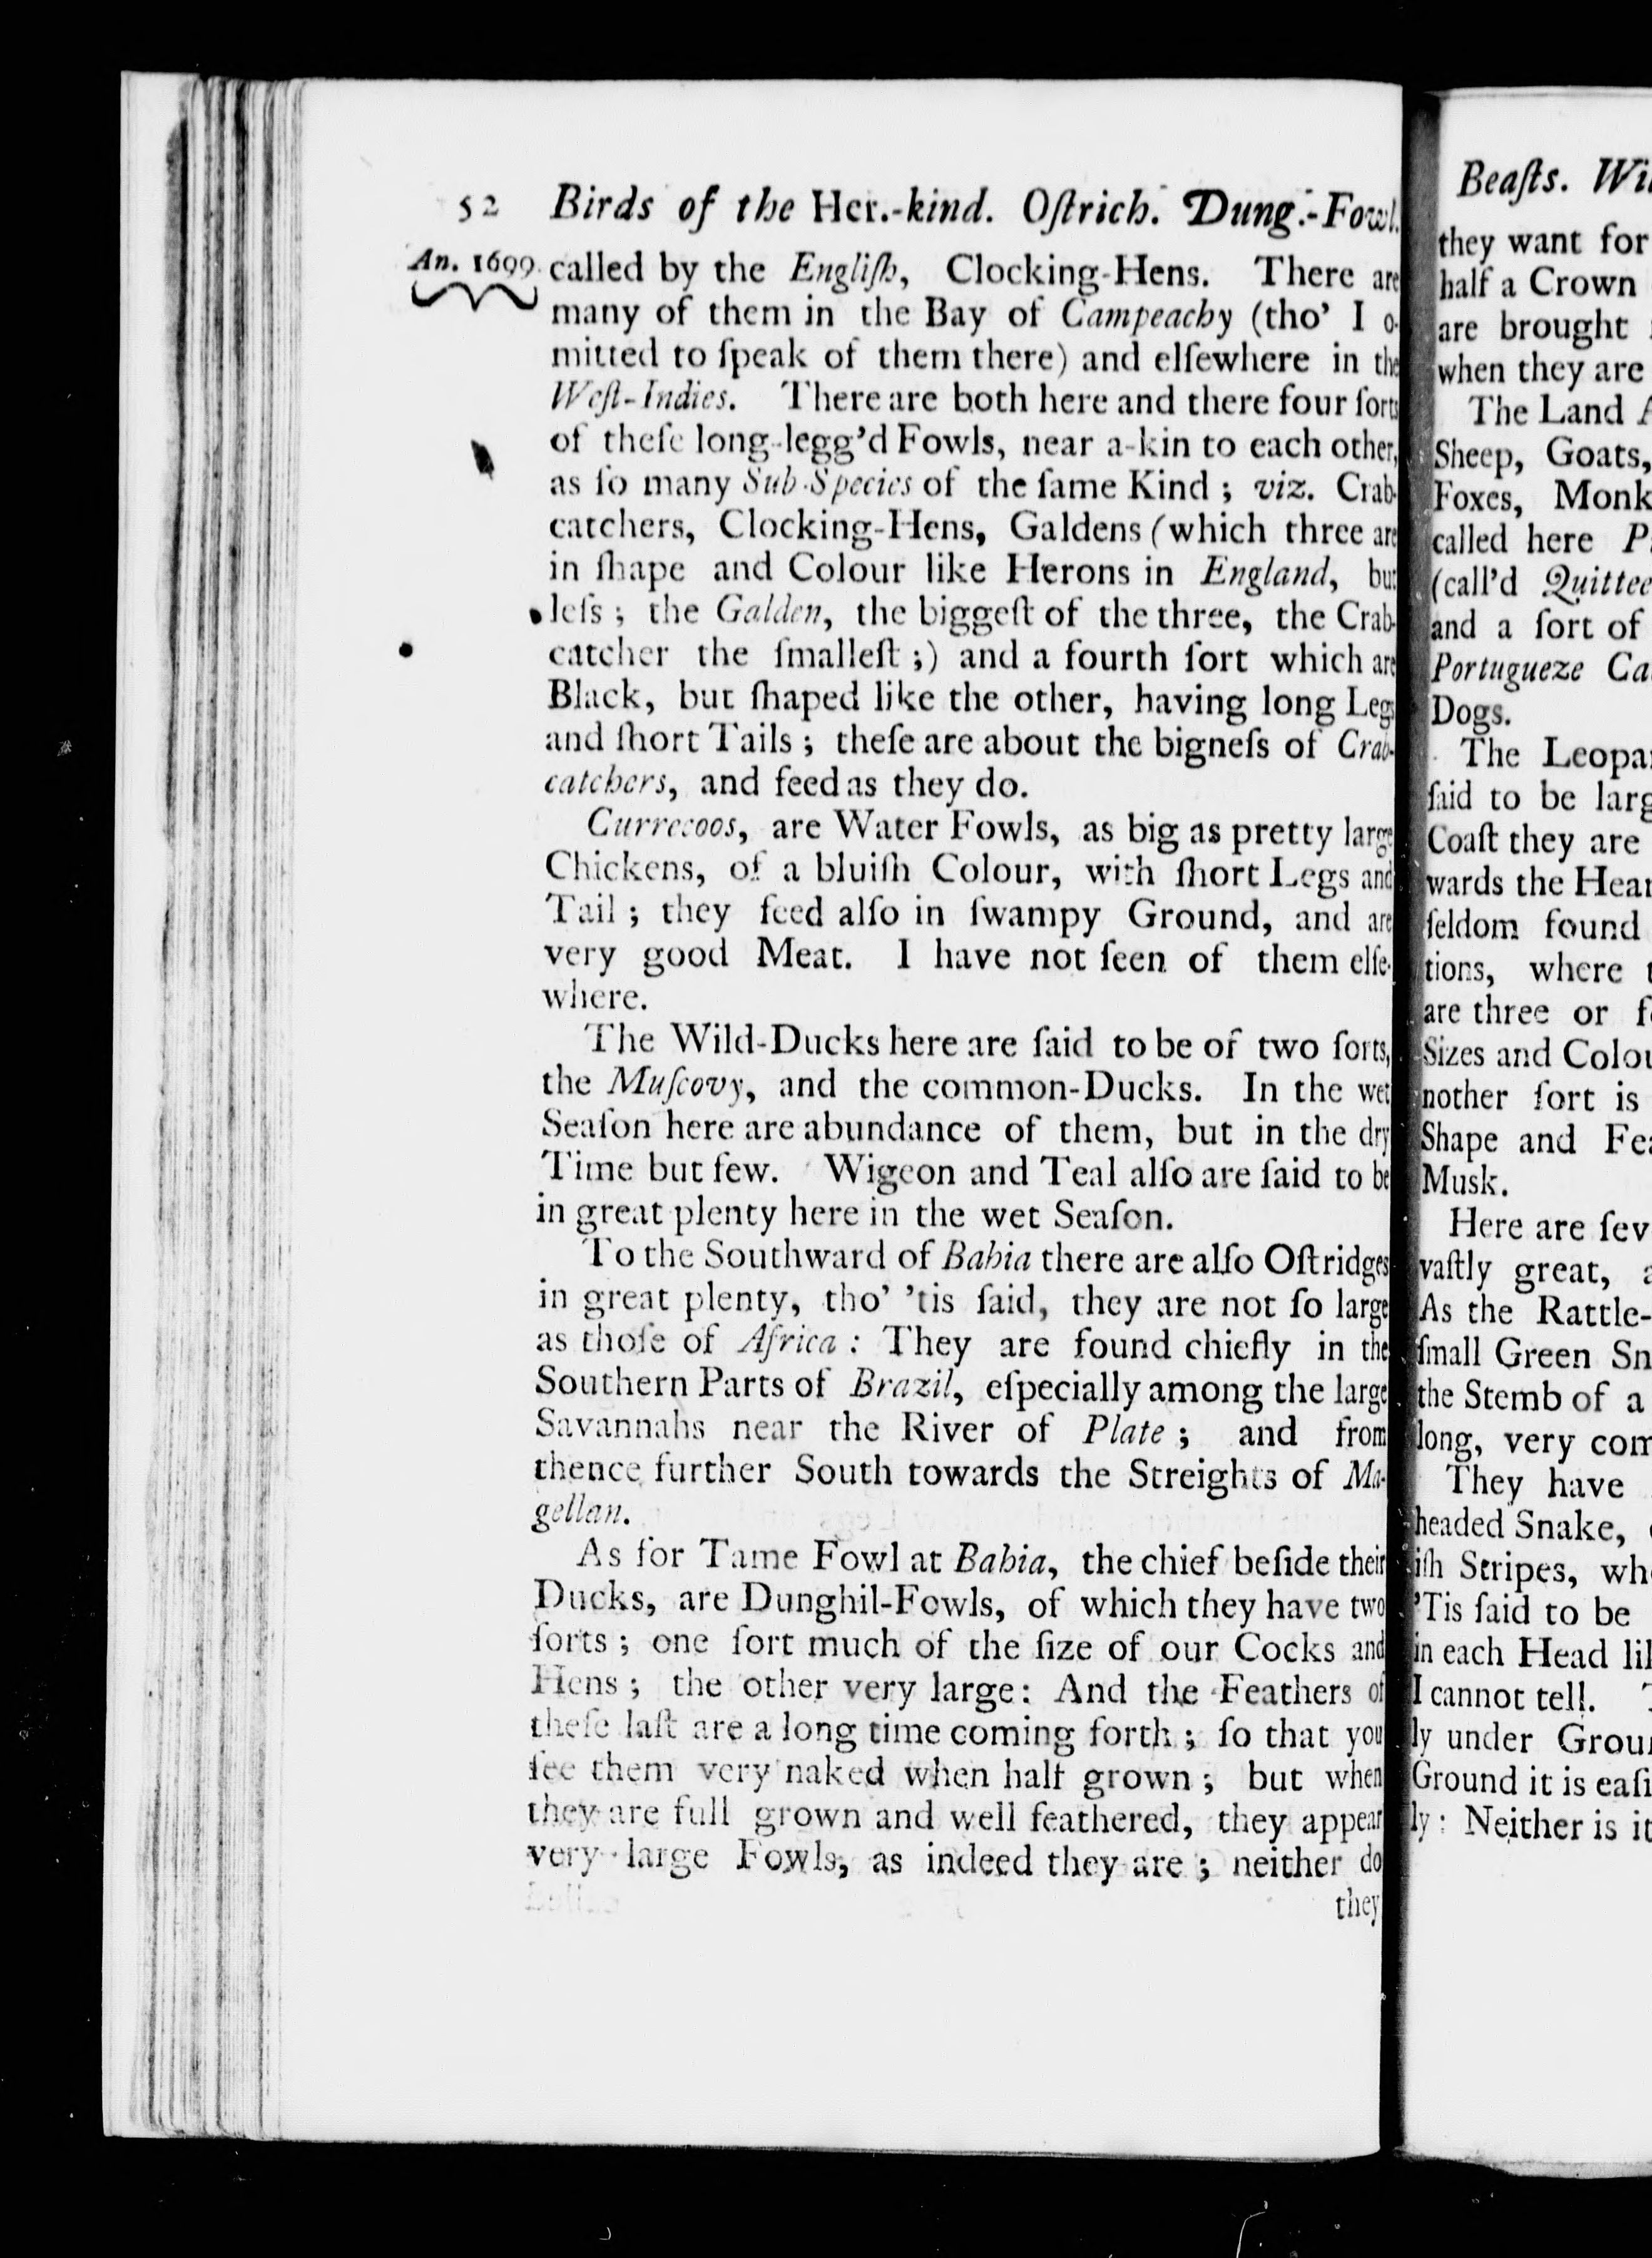 52 Birds of the Her.-kind. Oſtrich. Dung.-Fowl.
An. 1699. called by the Engliſh, Clocking-Hens. There are
many of them in the Bay of Campeachy (tho' I o-
mitted to ſpeak of them there) and elſewhere in the
Weſt-Indies. There are both here and there four ſorts
of theſe long-legg'd Fowls, near a-kin to each other,
as ſo many Sub-Species of the ſame Kind ; viz. Crab-
catchers, Clocking-Hens, Galdens (which three are
in ſhape and Colour like Herons in England, but
leſs ; the Galden, the biggeſt of the three, the Crab-
catcher the ſmalleſt ;) and a fourth ſort which are
Black, but ſhaped like the other, having long Legs
and ſhort Tails ; theſe are about the bigneſs of Crab-
catchers, and feed as they do.
Currecoos, are Water Fowls, as big as pretty large
Chickens, of a bluiſh Colour, with ſhort Legs and
Tail ; they feed alſo in ſwampy Ground, and are
very good Meat. I have not ſeen of them elſe-
where.
The Wild-Ducks here are ſaid to be of two ſorts,
the Muſcovy, and the common-Ducks. In the wet
Seaſon here are abundance of them, but in the dry
Time but few. Wigeon and Teal alſo are ſaid to be
in great plenty here in the wet Seaſon.
To the Southward of Bahia there are alſo Oſtridges
in great plenty, tho' 'tis ſaid, they are not ſo large
as thoſe of Africa : They are found chiefly in the
Southern Parts of Brazil, eſpecially among the large
Savannahs near the River of Plate ; and from
thence further South towards the Streights of Ma-
gellan.
As for Tame Fowl at Bahia, the chief beſide their
Ducks, are Dunghil-Fowls, of which they have two
ſorts ; one ſort much of the ſize of our Cocks and
Hens ; the other very large: And the Feathers of
theſe laſt are a long time coming forth ; ſo that you
ſee them very naked when half grown ; but when
they are full grown and well feathered, they appear
very large Fowls, as indeed they are ; neither do
they
Beaſts.
they want for
half a Crown
are brought
when they are
The Land
Sheep, Goats,
Foxes,
called here
(call'd
and a ſort of
Portugueze
Dogs.
The
ſaid to be
Coaſt they are
wards the
ſeldom found
tions, where
are three or
Sizes and
nother ſort is
Shape and
Musk.
Here are
vaſtly great,
As the
ſmall Green
the Stemb of a
long, very
They have
headed Snake,
iſh Stripes,
'Tis ſaid to be
in each Head
I cannot tell.
ly under
Ground it is
ly : Neither is it